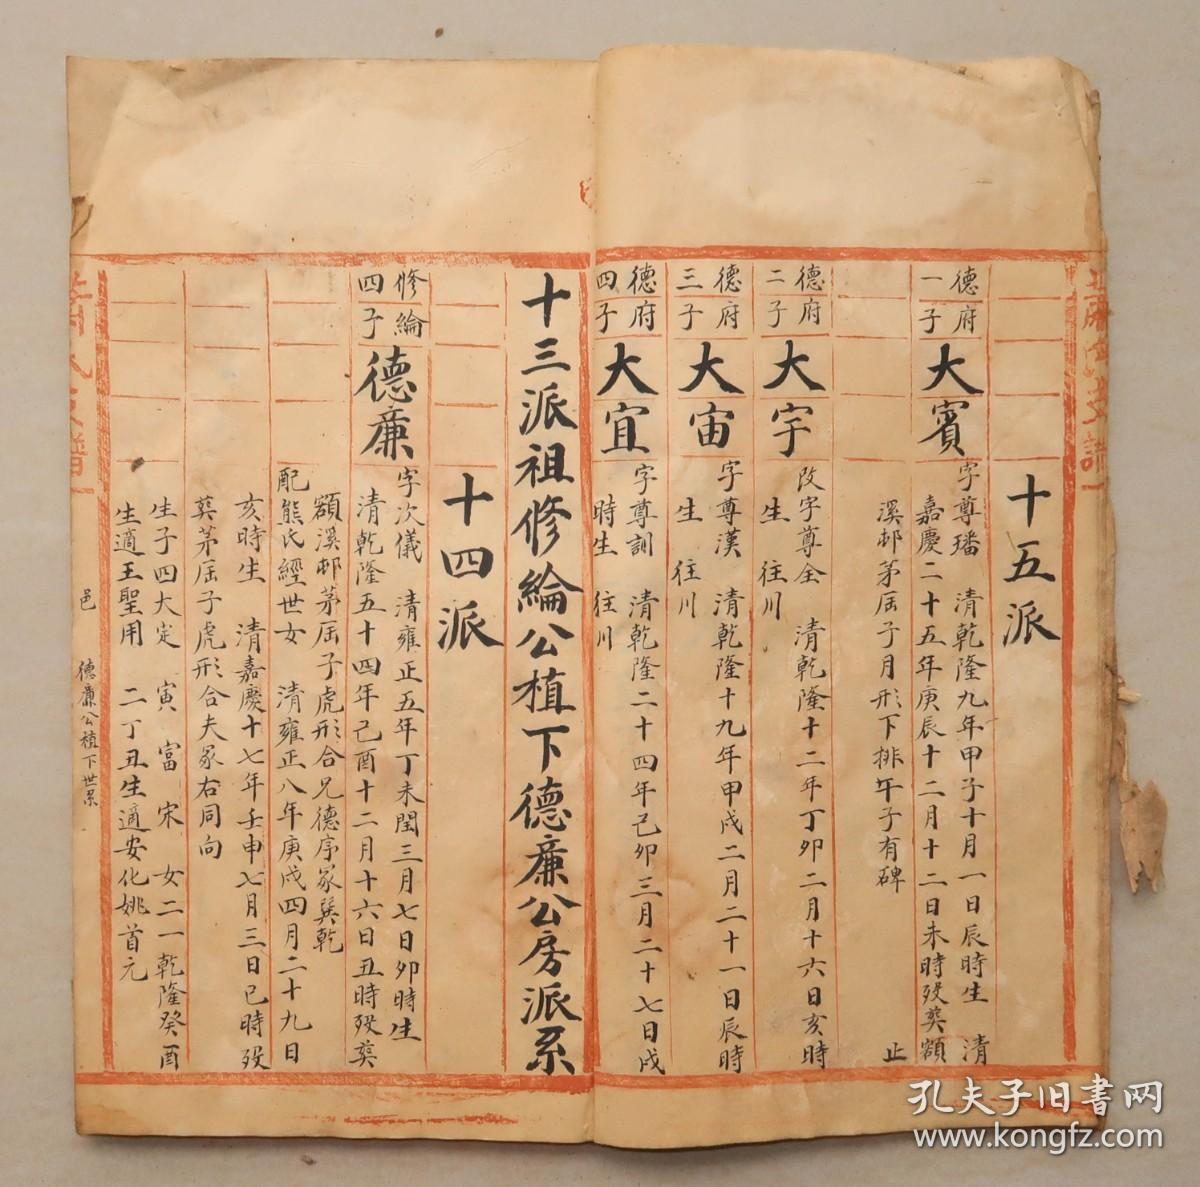 十五派
德府
一子
大賓
字尊璠　清乾隆九年甲子十月一日辰時生　清
嘉慶二十五年庚辰十二月十二日未時歿葬額
溪邨茅屋子月形下排午子有碑　止
德府
二子
大宇
改字尊全　清乾隆十二年丁卯二月十六日亥時
生　往川
德府
三子
大宙
字尊漢　清乾隆十九年甲戌二月二十一日辰時
生　往川
德府
四子
大宜
字尊訓　清乾隆二十四年己卯三月二十七日戌
時生　往川
十三派祖修綸公植下德廉公房派系
十四派
修綸
四子
德廉
字次儀　清雍正五年丁未閏三月七日卯時生
清乾隆五十四年己酉十二月十六日丑時歿葬
額溪邨茅屋子虎形合兄德序冢巽乾
配熊氏經世女　清雍正八年庚戌四月二十九日
亥時生　清嘉慶十七年壬申七月三日巳時歿
葬茅屋子虎形合夫冢右同向
生子四大定　寅　富　宋　女二一乾隆癸酉
生適王聖用　二丁丑生適安化姚首元
邑　德廉公植下世系
支譜
孔夫子旧书网
www.kongfz.com